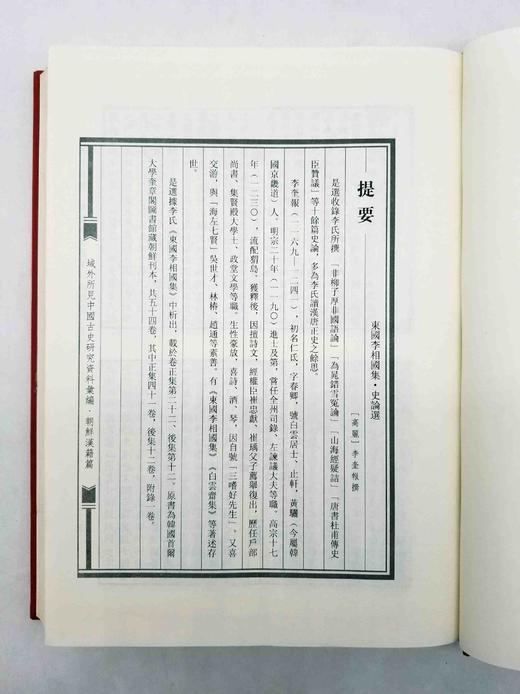 提要
東國李相國集·史論選
［高麗］李奎報撰
是選收錄李氏所撰「非柳子厚非國語論」「為晁錯雪冤論」「山海經疑詰」「唐書杜甫傳史
臣贊議」等十餘篇史論，多為李氏讀漢唐正史之餘思。
李奎報（一一六九—一二四一），初名仁氏，字春卿，號白雲居士、止軒，黃驪（今屬韓
國京畿道）人。明宗二十年（一一九〇）進士及第，嘗任全州司錄、左諫議大夫等職。高宗十七
年（一二三〇），流配蝟島，獲釋後，因擅詩文，經權臣崔忠獻、崔瑀父子薦舉復出，歷任戶部
尚書、集賢殿大學士、政堂文學等職。生性豪放，喜詩、酒、琴，因自號「三嗜好先生」。又喜
交游，與「海左七賢」吳世才、林椿、趙通等素善。有《東國李相國集》《白雲齋集》等著述存
世。
是選據李氏《東國李相國集》中析出，載於卷正集第二十二、後集第十二。原書為韓國首爾
大學奎章閣圖書館藏朝鮮刊本，共五十四卷，其中正集四十一卷，後集十二卷，附錄一卷。
域外所見中國古史研究資料彙編·朝鮮漢籍篇